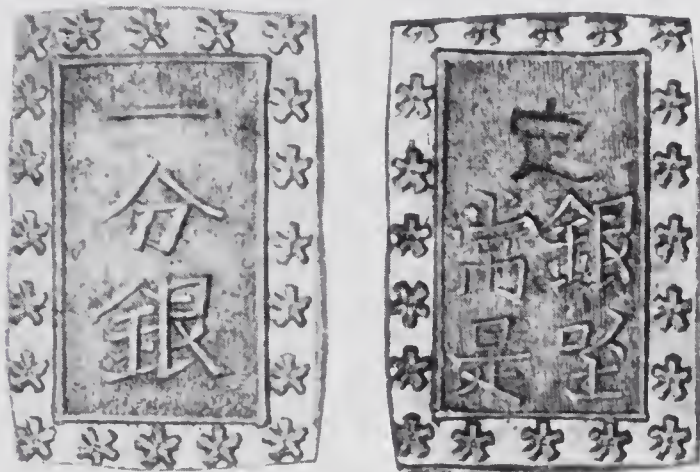 一分銀
定
銀座
常是